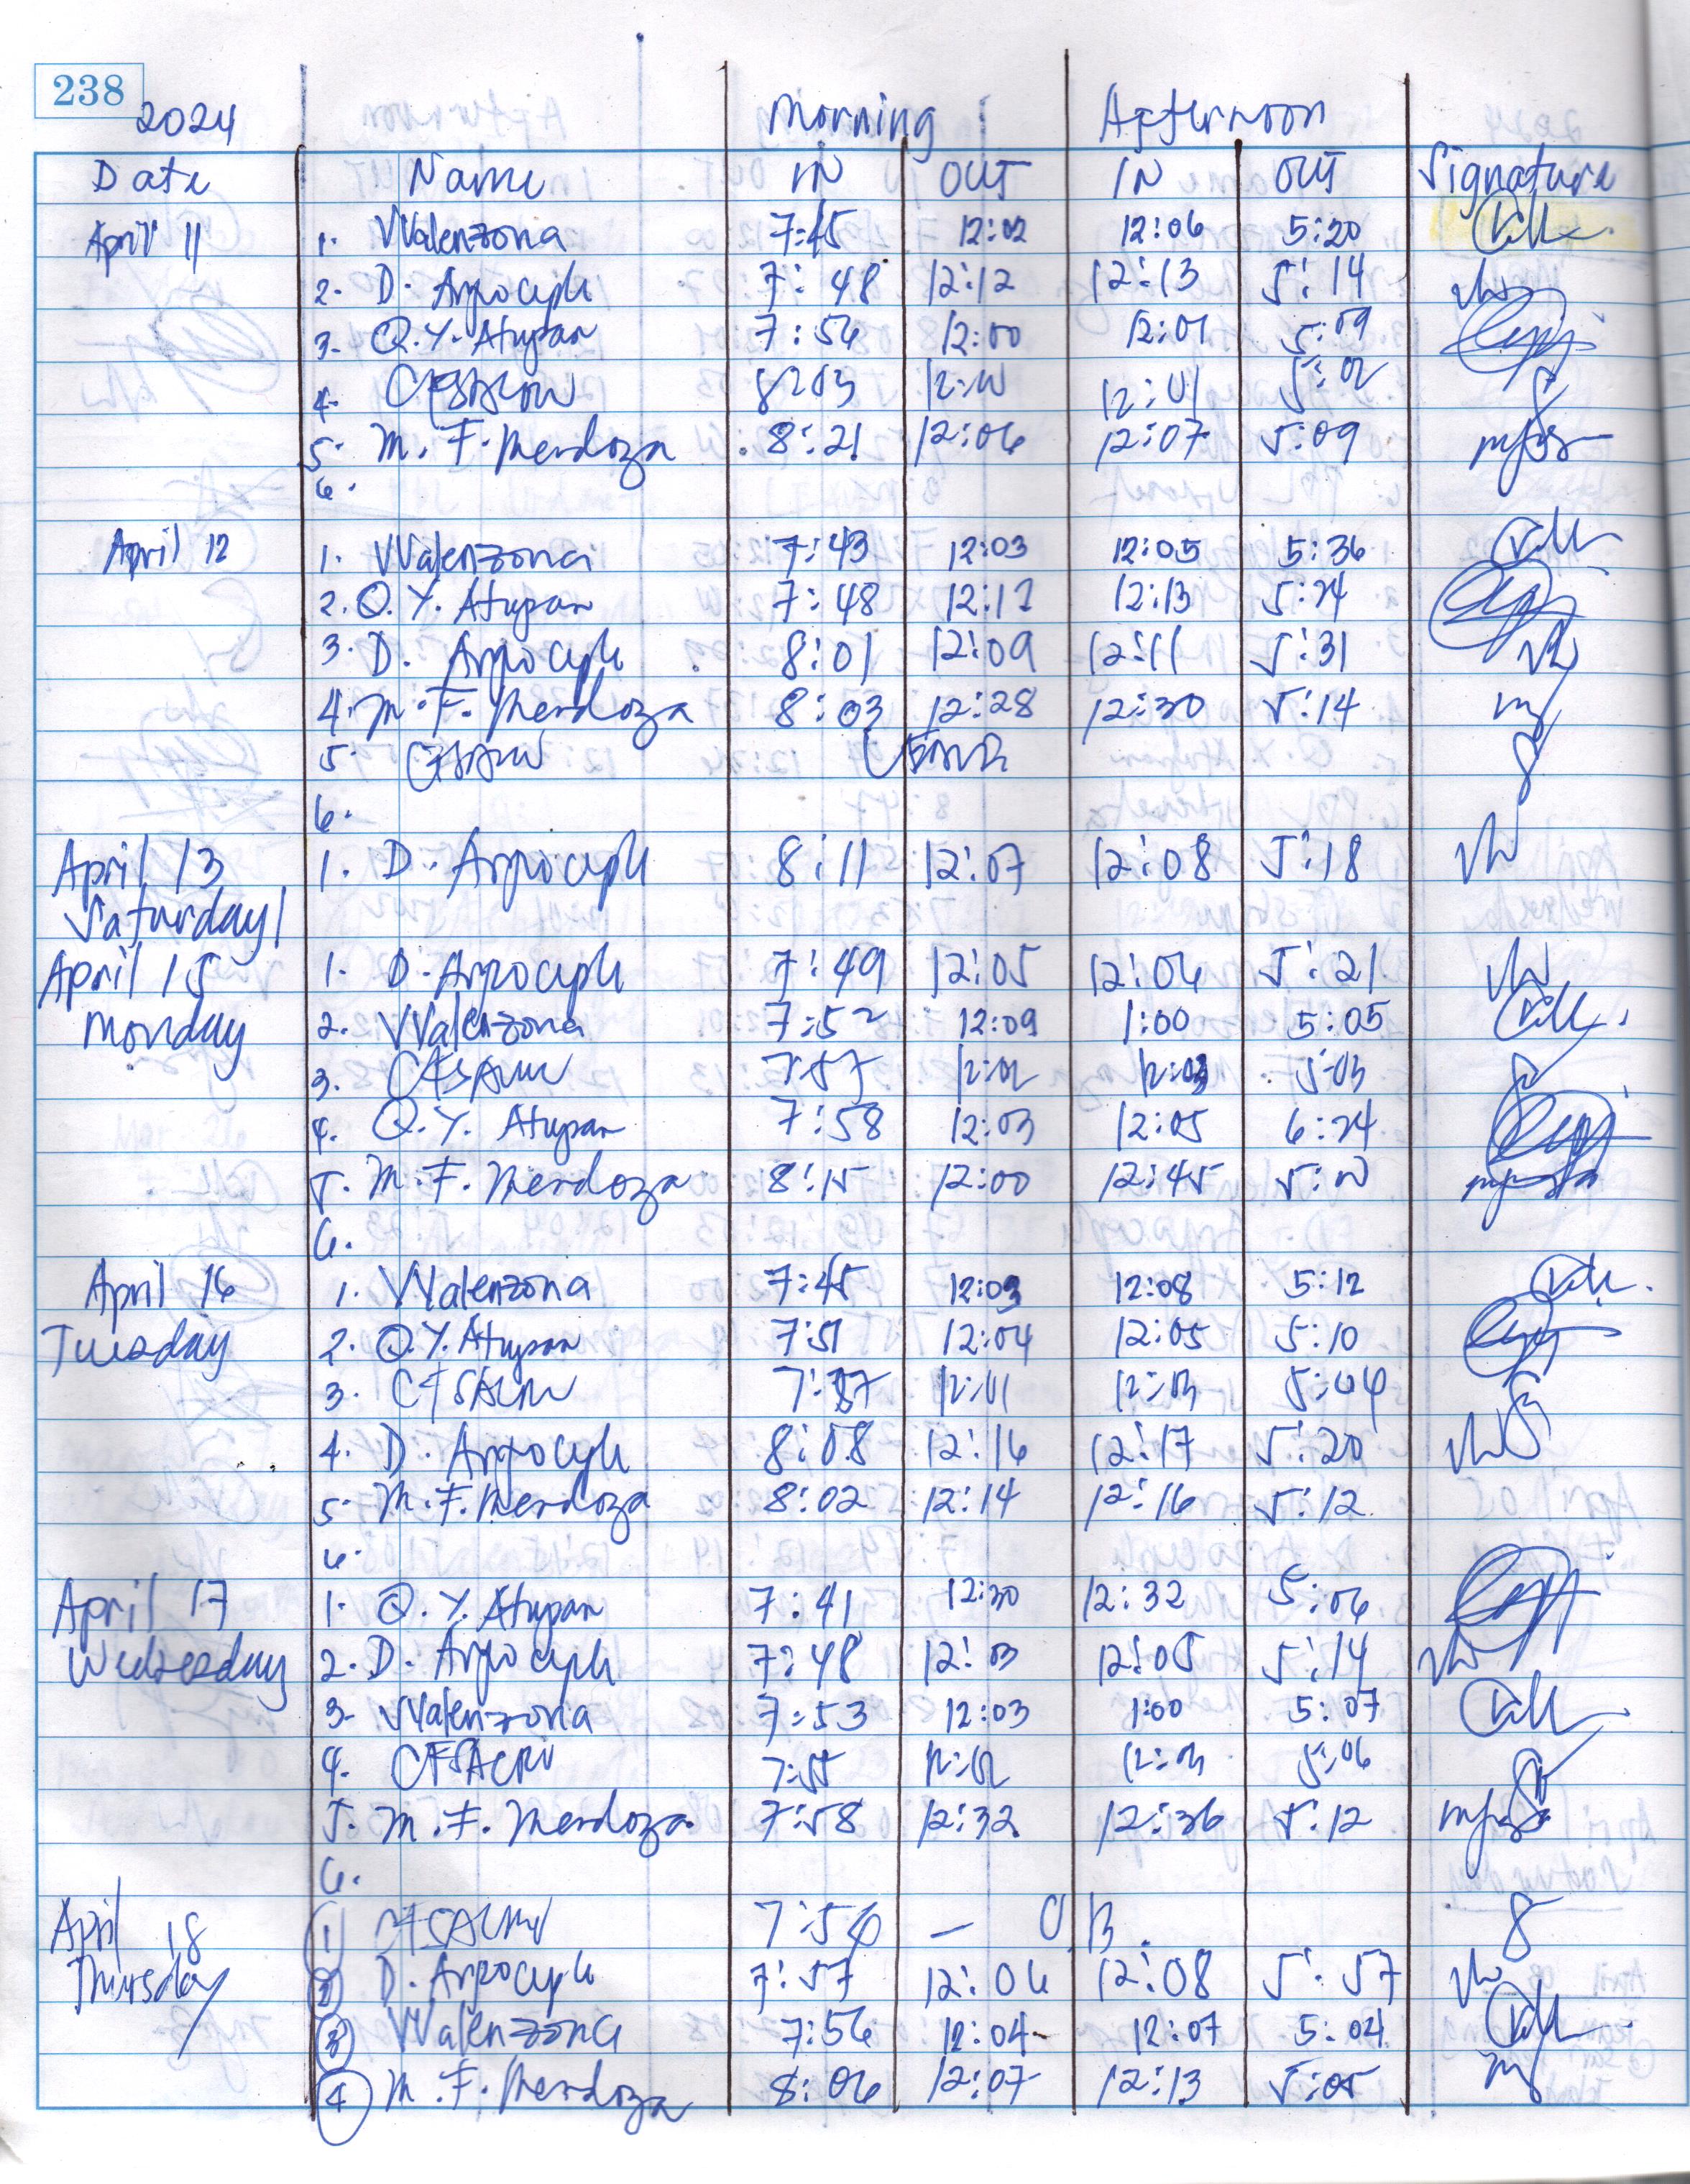 238
2024 Morning Afternoon
Date Name IN OUT IN OUT Signature
April 11 1. VValenzona 7:45 12:02 12:06 5:20
2. D. Arpoceph 7:48 12:12 12:13 5:14
3- Q.Y. Atupan 7:56 12:00 12:01 5:09
4. 8:03
5. M. F. Mendoza 8:21 12:06 12:07 5:09
6.
April 12 1. VValenzona 7:43 12:03 12:05 5:36
2. Q. Y. Atupan 7:48 12:12 12:13 5:24
3. D. Arpoceph 8:01 12:09 12:11 5:31
4. M. F. Mendoza 8:03 12:28 12:30 5:14
5.
6.
April 13 1. D. Arpoceph 8:11 12:07 12:08 5:18
Saturday
April 15 1. D. Arpoceph 7:49 12:05 12:06 5:21
Monday 2. VValenzona 7:52 12:09 1:00 5:05
3. 7:57 12:02 12:03 5:03
4. Q.Y. Atupan 7:58 12:03 12:05 6:24
5. M. F. Mendoza 8:15 12:00 12:45
6.
April 16 1. VValenzona 7:45 12:03 12:08 5:12
Tuesday 2. Q.Y. Atupan 7:51 12:04 12:05 5:10
3. 12:01 12:03 5:04
4. D. Arpoceph 8:08 12:16 12:17 5:20
5. M. F. Mendoza 8:02 12:14 12:16 5:12
6.
April 17 1. Q. Y. Atupan 7:41 12:30 12:32 5:06
Wednesday 2. D. Arpoceph 7:48 12:03 12:05 5:14
3- VValenzona 7:53 12:03 1:00 5:07
4. 7:55 12:02 12:03 5:06
5. M. F. Mendoza 7:58 12:32 12:36 5:12
6.
April 18 1 7:56 — O.B.
Thursday 2 D. Arpoceph 7:57 12:06 12:08 5:57
3 VValenzona 7:56 12:04 12:07 5:04
4 M. F. Mendoza 8:06 12:07 12:13 5:05